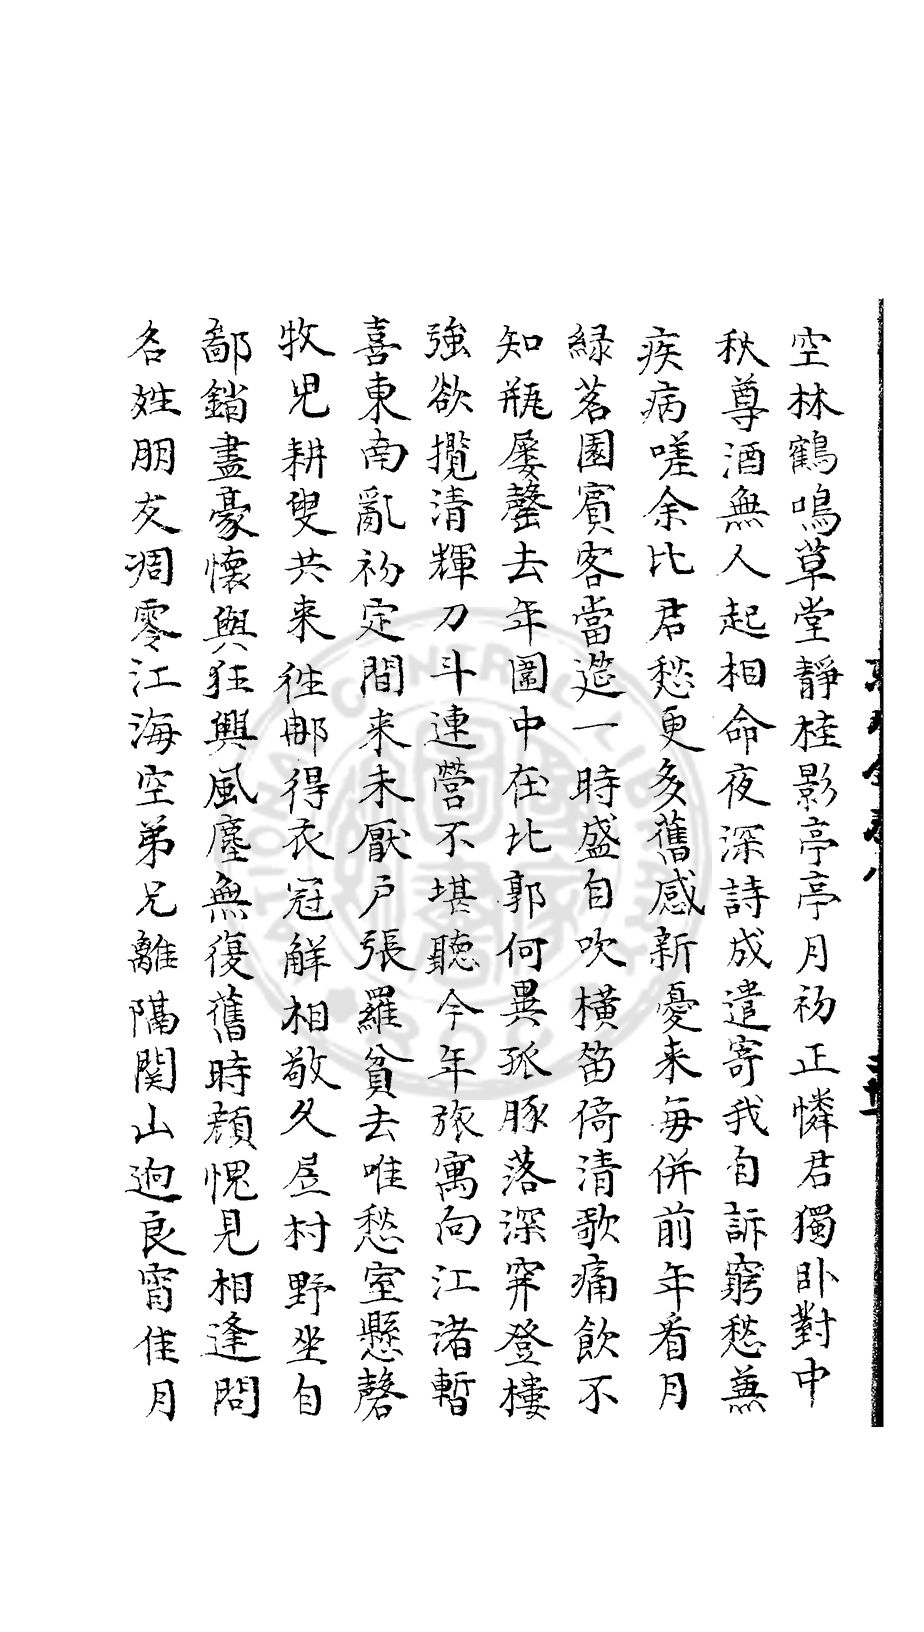 空林鶴鳴草堂靜桂影亭亭月初正憐君獨卧對中
秋尊酒無人起相命夜深詩成遣寄我自訴窮愁兼
疾病嗟余比君愁更多舊感新憂来每併前年看月
緑茗園賓客當筵一時盛自吹横笛倚清歌痛飲不
知瓶屢罄去年圍中在北郭何異孤豚落深穽登樓
強欲攬清輝刀斗連營不堪聽今年旅寓向江渚暫
喜東南亂初定閒来未厭户張羅貧去唯愁室懸磬
牧児耕叟共来徃那得衣冠解相敬久居村野坐自
鄙銷盡豪懷與狂興風塵無復舊時顔愧見相逢問
名姓朋友凋零江海空弟兄離隔関山逈良宵佳月